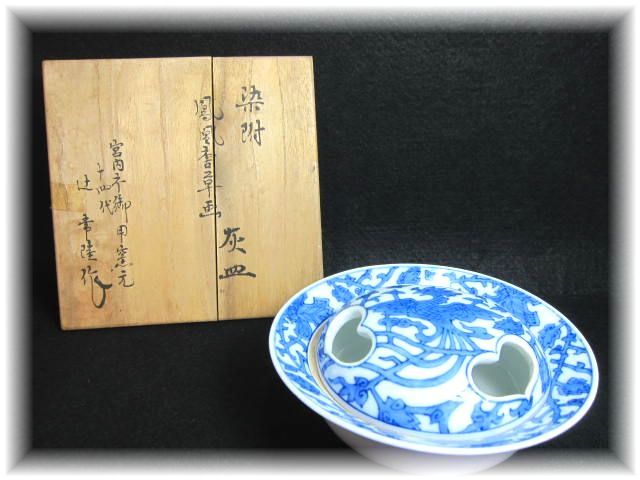 染附
鳳凰唐草画
灰皿
宮内庁御用窯元
十四代
辻常陸作